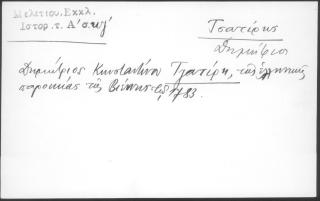 Μελετίου. Εκκλ.
Ιστορ. τ. Α' σ.
Τσατίρης
Δημήτριος
Δημήτριος Κωνσταντίνου Τσατίρη, της ελληνικής
παροικίας της Βιέννης 1783.